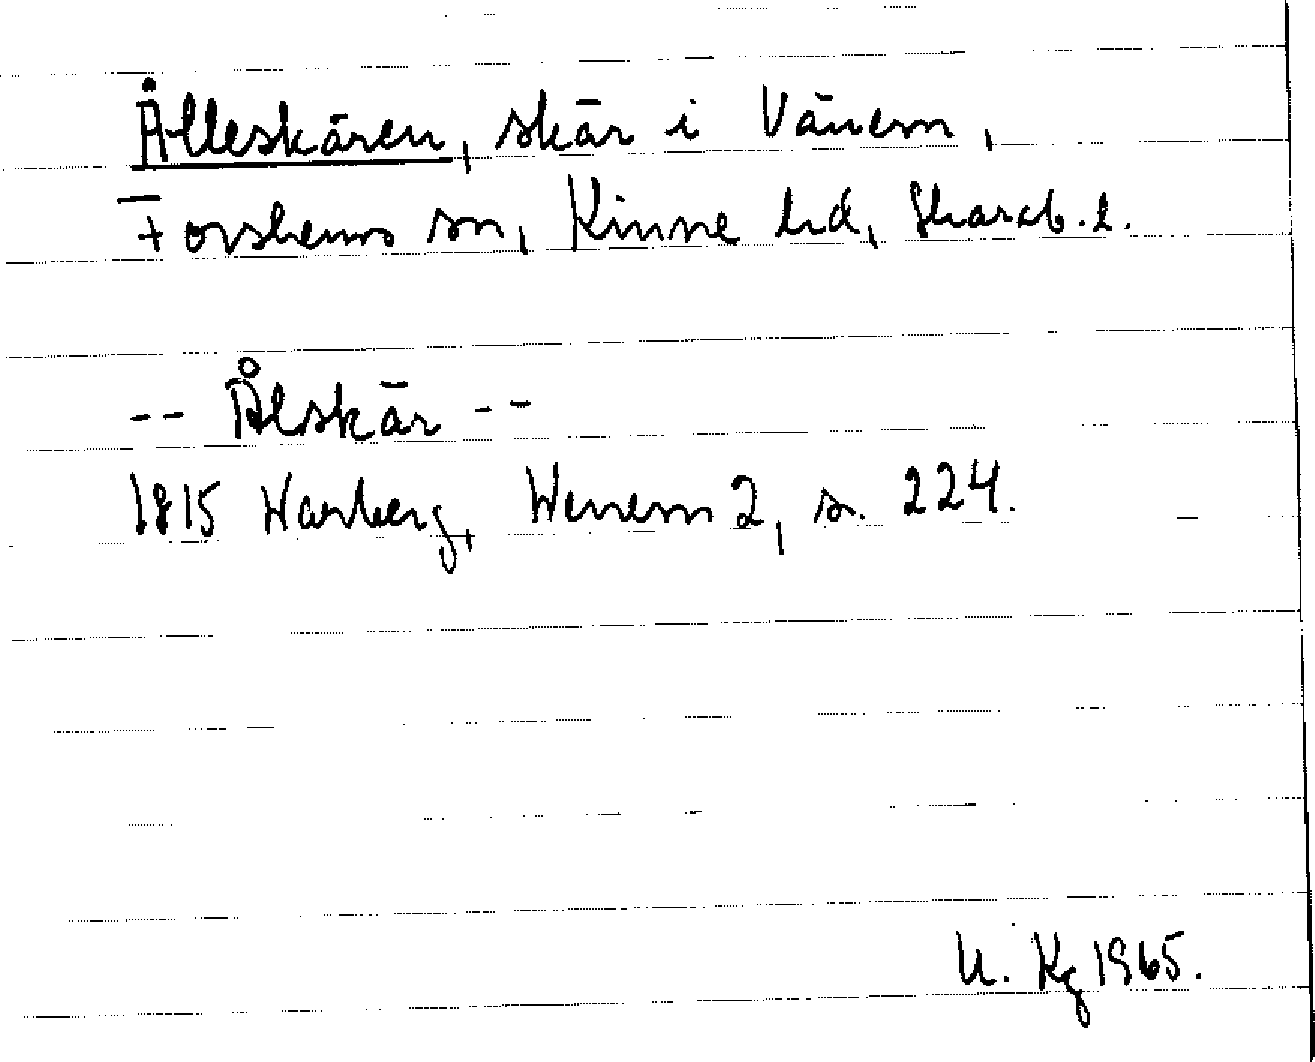 Ålleskären, skär i Vänern,
Forshems sn, Kinne hd, Skarab. l.
-- Ålskär --
1815 Warberg, Wenern 2, s. 224.
U. Kg 1965.